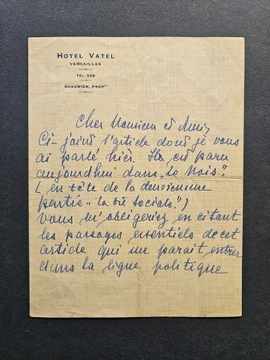 HOTEL VATEL
VERSAILLES
TÉL. 558
CHAUMIEN, PROP
Cher Monsieur et Ami,
Ci-joint l'article dont je vous
ai parlé hier. Il est paru
aujourd'hui dans "Le Mois".
(en tête de la deuxième
partie "la vie sociale.")
Vous m'obligeriez en citant
les passages essentiels de cet
article qui me parait entrer
dans la ligne politique